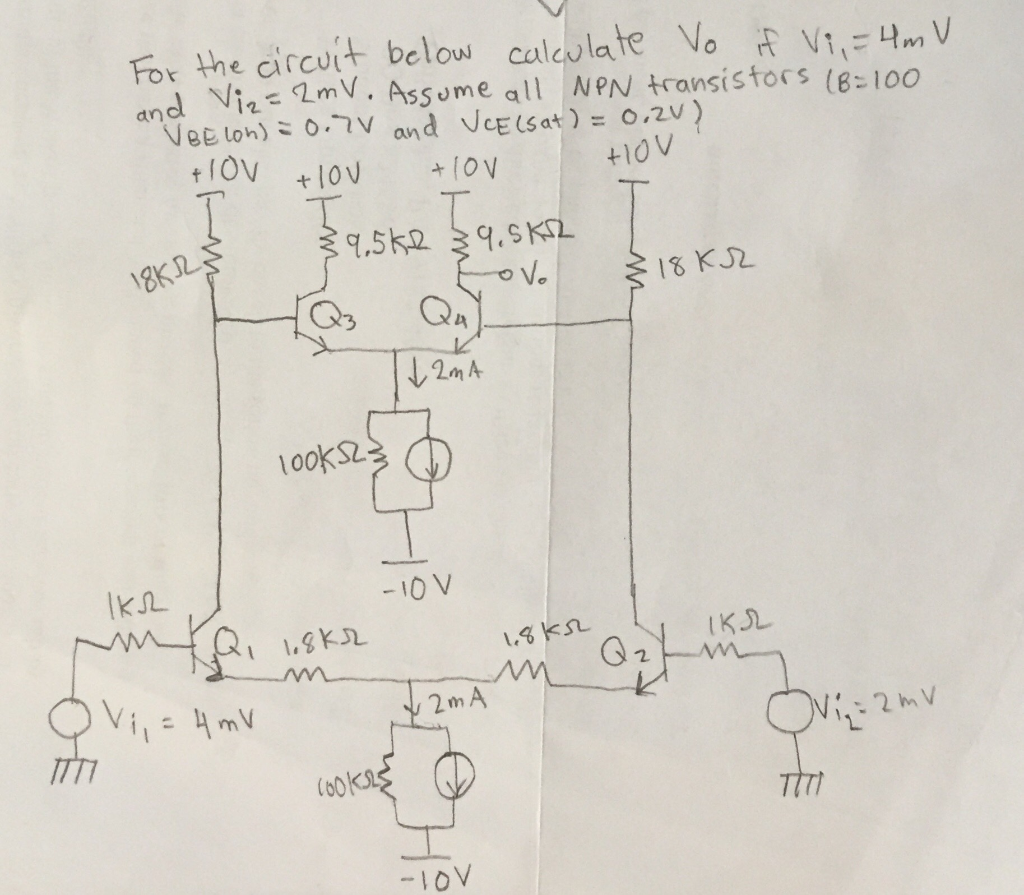 For the circuit below calculate Vo if Vi₁ = 4mV
and Vi₂ = 2mV. Assume all NPN transistors (B=100
VBE(on) = 0.7V and VCE(sat) = 0.2V)
+10V +10V +10V +10V
18KΩ 9.5kΩ 9.5KΩ 18KΩ
Vo
Q3 Q4
↓ 2mA
100KΩ
-10V
1KΩ 1.8KΩ 1.8KΩ 1KΩ
Q1 Q2
↓ 2mA
Vi₁ = 4mV Vi₂ = 2mV
100KΩ
-10V